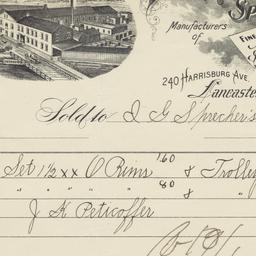 Sp
Manufacturers
of
Fin
240 Harrisburg Ave.
Lancaste
Sold to J G Sprecher's
160
Set 1 1/2 xx O Rims & Trolley
" " " " 80 & "
J K Peticoffer